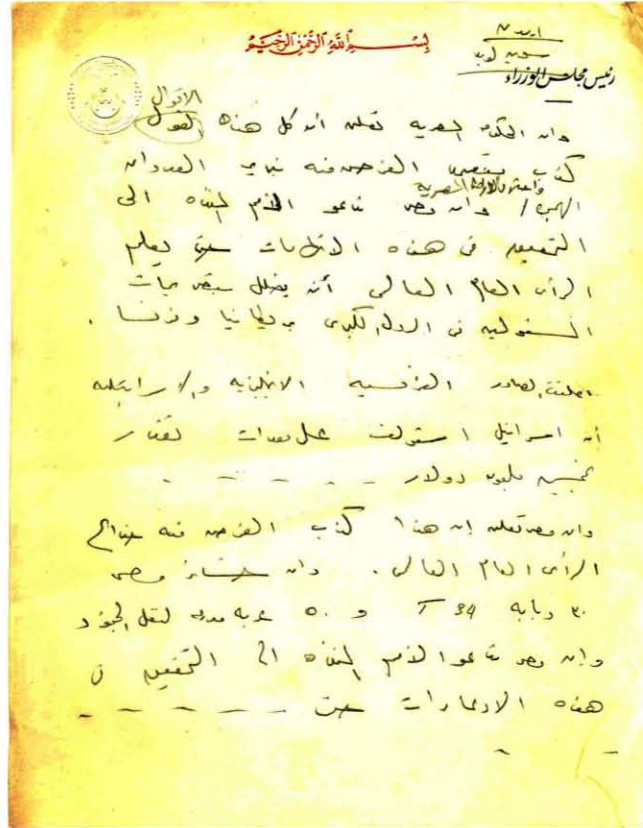 بسم الله الرحمن الرحيم
رئيس مجلس الوزراء
الاقوال
وان الحكومة المصريه تعلن أن كل هذه القول
كذب يقصد الغرض منه تبرير العدوان
واحتلال الأراضى المصريه
وان مصر تدعو الأمم المتحده الى
التحقيق فى هذه الاتهامات حتى يعلم
الرأى العام العالمى أن يضلل
المسئوليه فى الدول الكبرى بريطانيا وفرنسا .
اعلنت المصادر الفرنسيه الانجليزيه والاسرائيليه
أن اسرائيل استولت على معدات تقدر
بخمسين مليون دولار - - - -
وان مصر تعلن ان هذا كذب الغرض منه خداع
الرأى العام العالمى . وان خسائر مصر
٣٠ دبابه T 34 و ٥٠ عربه مدرعه لنقل الجنود
وان مصر تدعو الأمم المتحده الى التحقيق فى
هذه الادعاءات حتى - - - - -